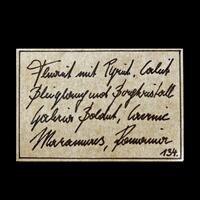 Fluorit mit Pyrit, Calcit
Bleiglanz und Bergkristall
Galeria Boldut, Cavnic
Maramures, Romania
134.